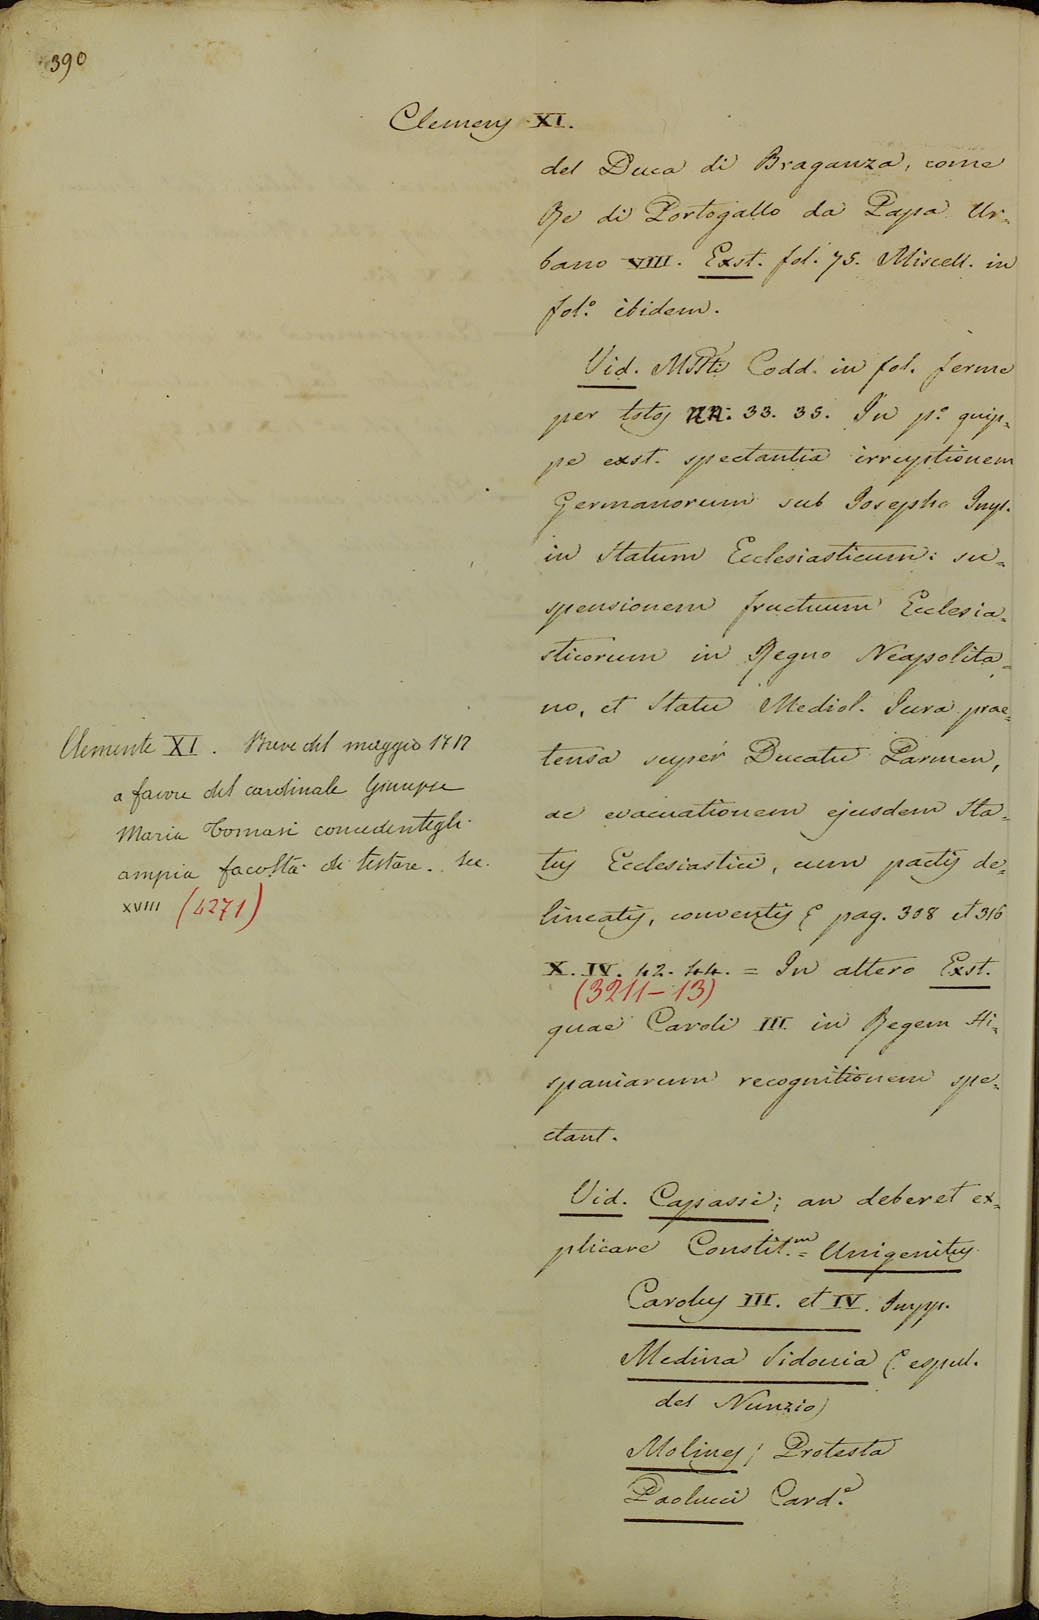 390
Clemens XI.
del Duca di Braganza, come
Re di Portogallo da Papa Ur=
bano VIII. Exst. fol. 75. Miscell. in
fol.º ibidem.
Vid. MSSti Codd. in fol. ferme
per totos nn. 33. 35. In p.º quip=
pe exst. spectantia irruptionem
Germanorum sub Josepho Imp.
in Statum Ecclesiasticum: su=
spensionem fructuum Ecclesia=
sticorum in Regno Neapolita=
no, et Statu Mediol. Jura prae=
tensa super Ducatu Parmen,
ac evacuationem ejusdem Sta=
tus Ecclesiastici, cum pactis de=
lineatis, conventis pag. 308 et 316
X. IV. 42. 44. = In altero Exst.
(3211-13)
quae Caroli III in Regem Hi=
spaniarum recognitionem spe=
ctant.
Vid. Capassi; an deberet ex=
plicare Constit.m = Unigenitus
Carolus III. et IV. Impp.
Medina Sidonia (espul.
del Nunzio)
Molines; Protesta
Paolucci Card.e
Clemente XI. Breve del maggio 1712
a favore del cardinale Giuseppe
Maria Tomasi concedentegli
ampia facoltà di testare. Sec.
XVIII (4271)